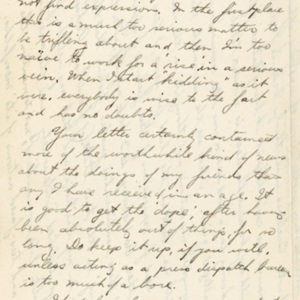 not find expression". In the first place
this is a much too serious matter to
be trifling about and then I'm too
naïve to work for a rise in a serious
vein. When I start "kidding" as it
were, everybody is wise to the fact
and has no doubts.
Your letter certainly contained
more of the worthwhile kind of news
about the doings of my friends than
any I have received in an age. It
is good to get the dope, after having
been absolutely out of things for so
long. Do keep it up, if you will,
unless acting as a press dispatch bureau
is too much of a bore.